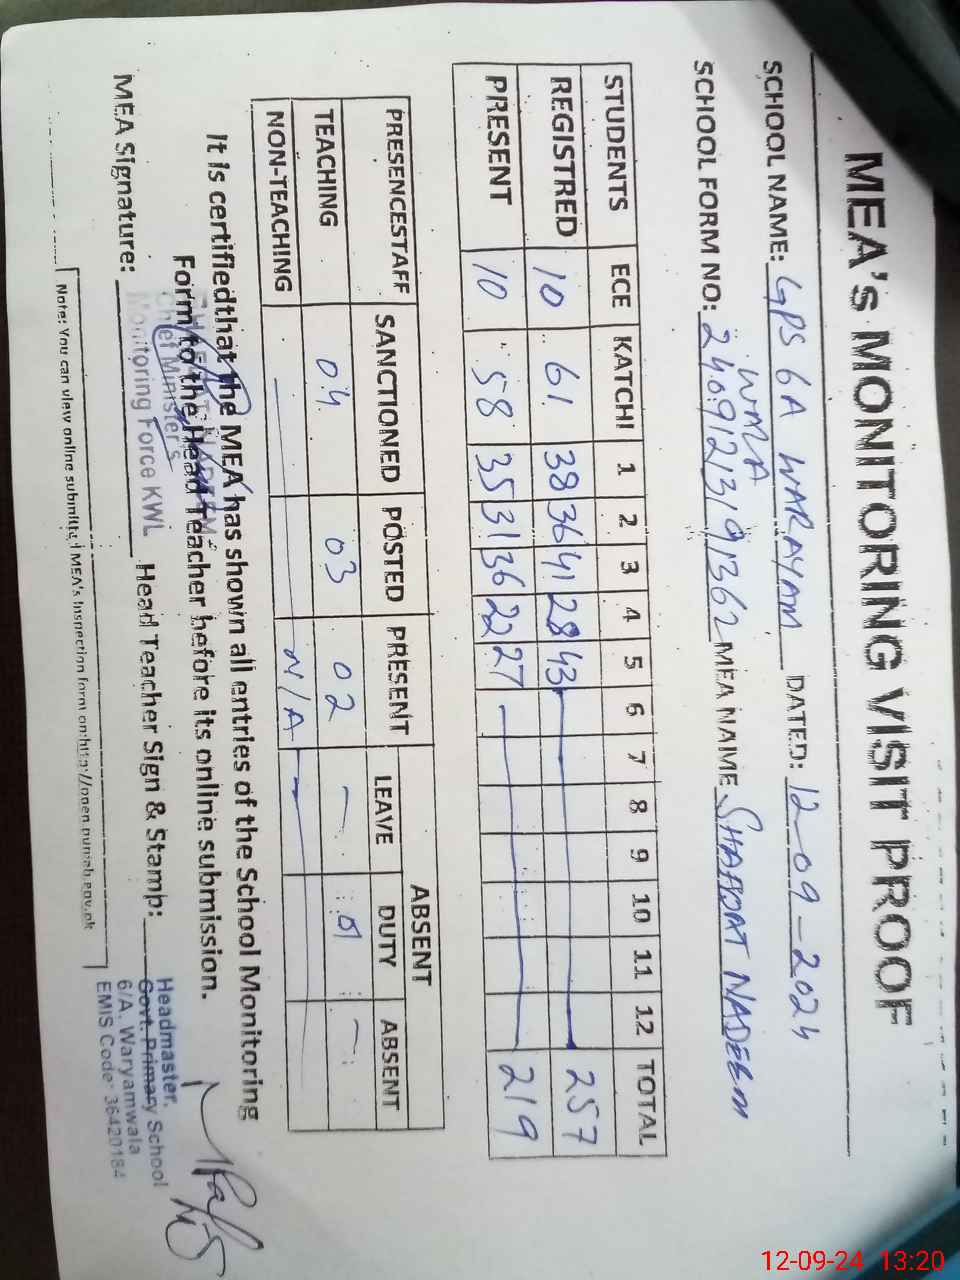 MEA's MONITORING VISIT PROOF
SCHOOL NAME: GPS 6A WARAYAM WALA DATED: 12-09-2024
SCHOOL FORM NO: 24091213191362 MEA NAME SHAFQAT NADEEM
STUDENTS ECE KATCHI 1 2 3 4 5 6 7 8 9 10 11 12 TOTAL
REGISTRED 10 61 38 36 41 28 43 257
PRESENT 10 58 35 31 36 22 27 219
ABSENT
PRESENCESTAFF SANCTIONED POSTED PRESENT LEAVE DUTY ABSENT
TEACHING 04 03 02 — 01 —
NON-TEACHING — N/A —
It is certifiedthat the MEA has shown all entries of the School Monitoring
Form to the Head Teacher before its online submission.
Chief Minister's
Monitoring Force KWL
MEA Signature: Head Teacher Sign & Stamp:
Headmaster,
Govt. Primary School
6/A. Waryamwala
EMIS Code: 36420184
Note: You can view online submitted MEA's Inspection form on:http://open.punjab.gov.pk
12-09-24 13:20